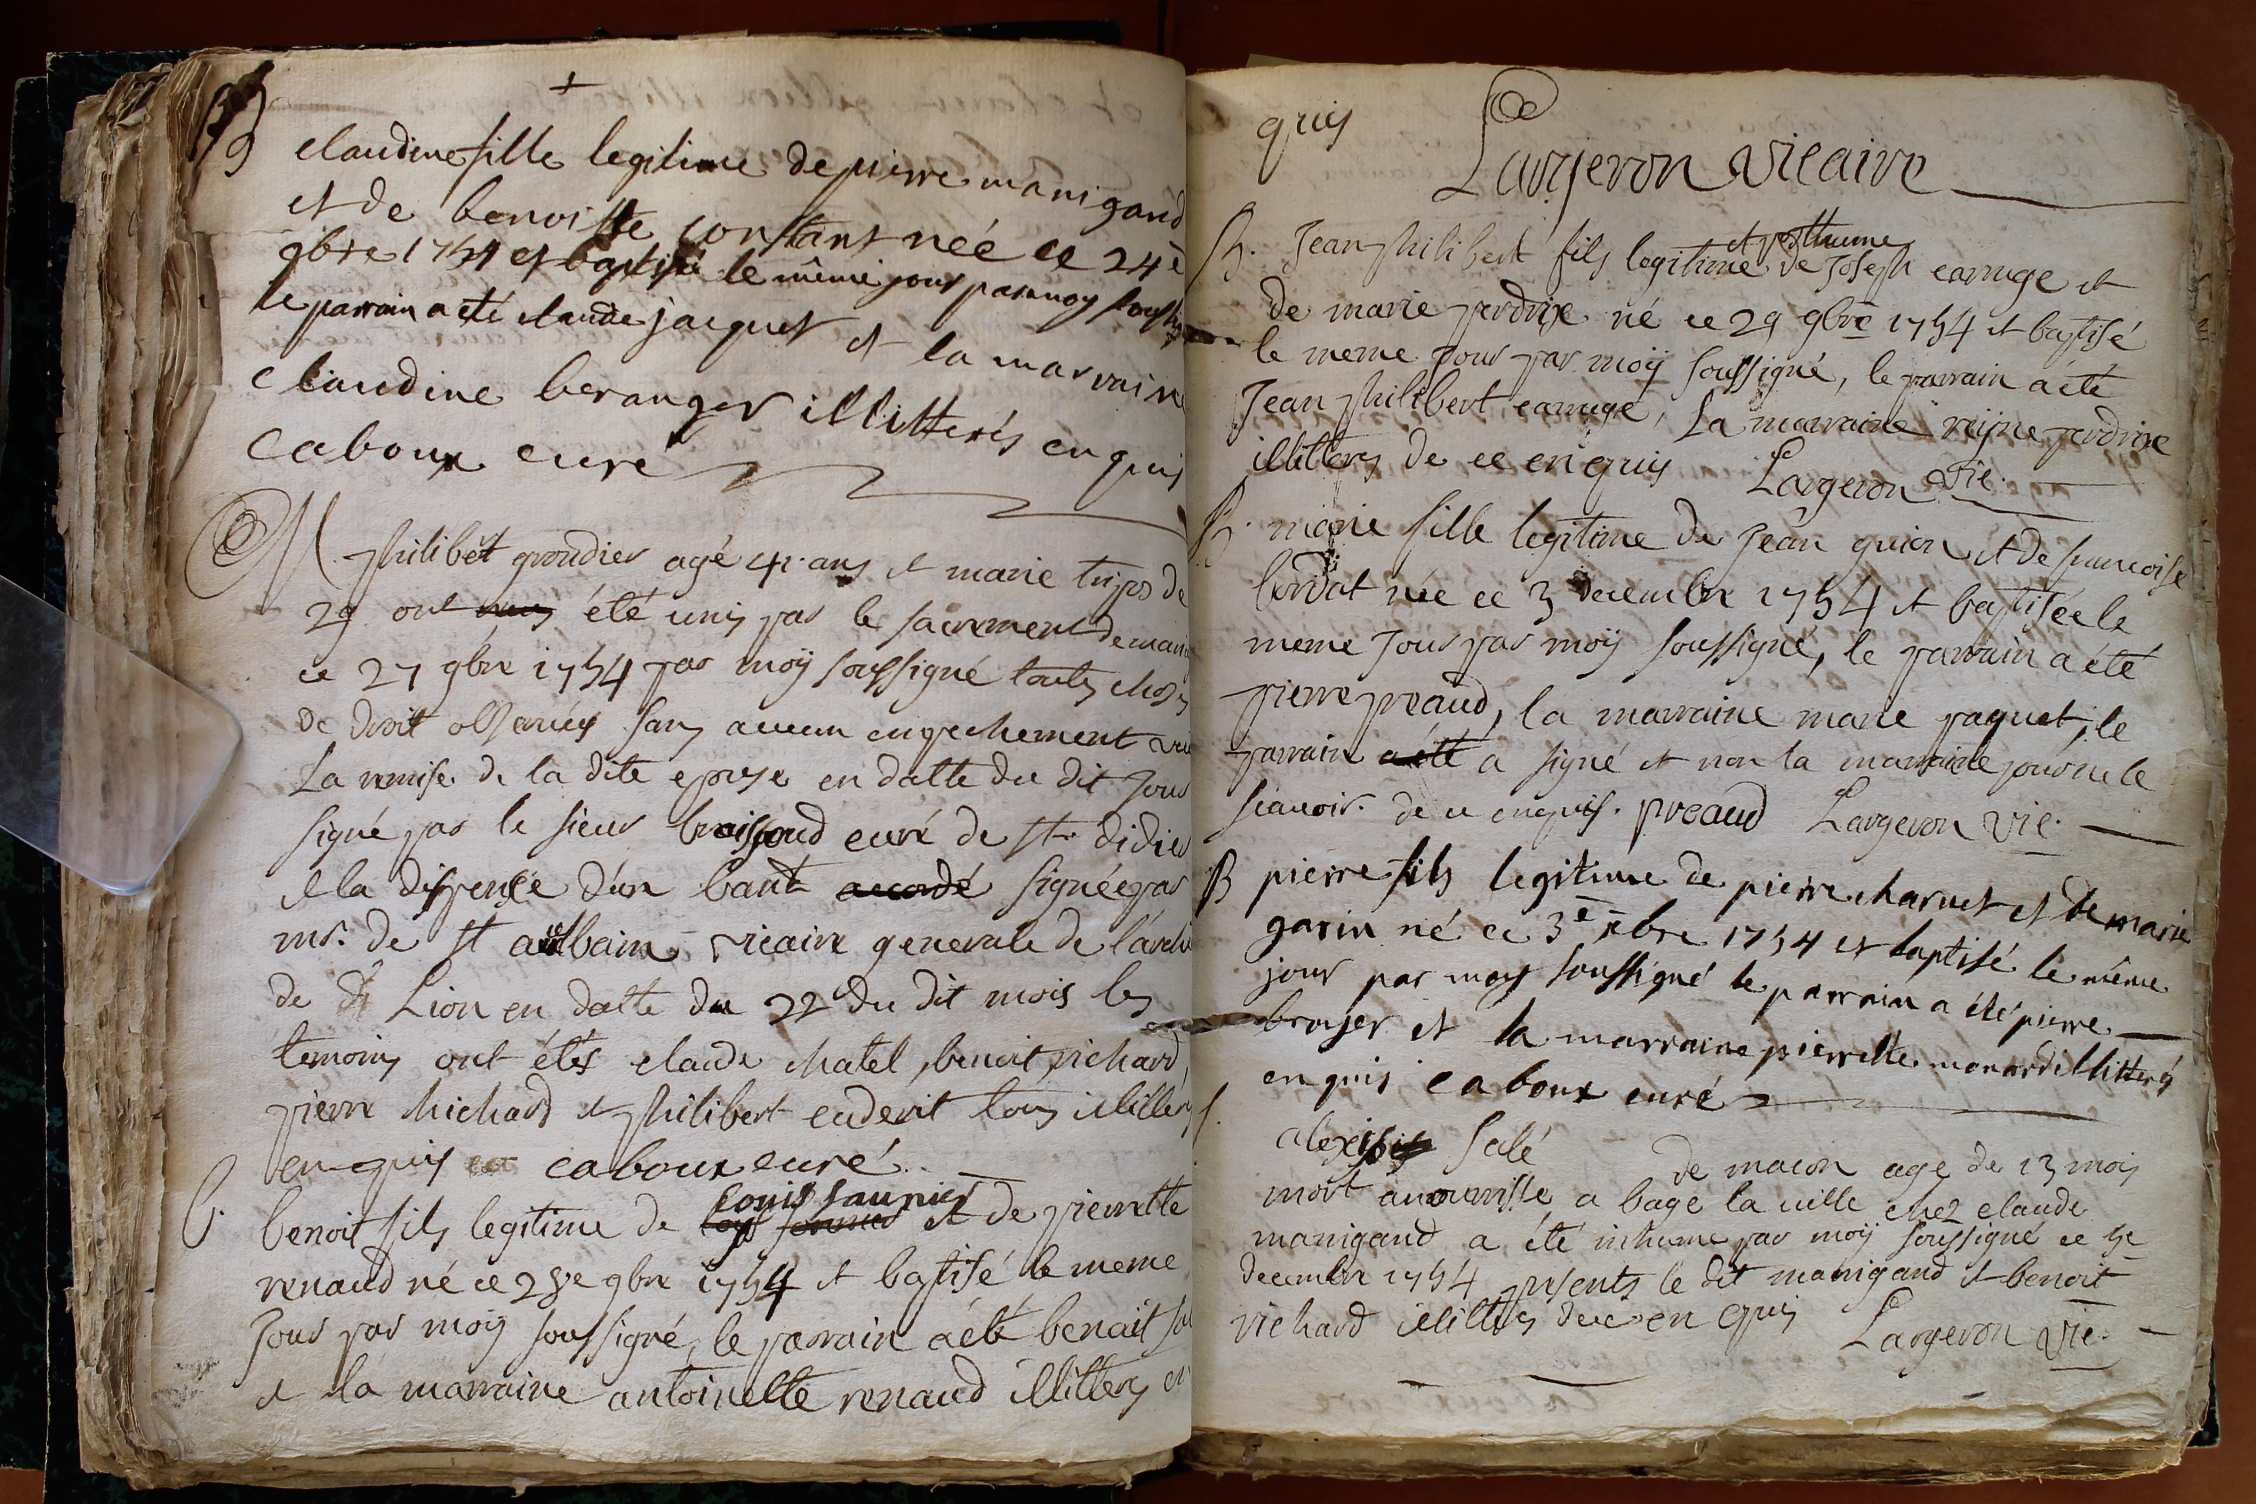 +
B claudine fille legitime de pierre manigand
et de benoiste constant née ce 24e
9bre 1754 et baptisé le même jour par moy soussig
le parrain a eté claude jacquet et la marrain
claudine beranger illitterés enquis
caboux curé
M philibert grondier agé 41 ans et marie de
29 ont été unis par le sacrement de mari
ce 27 9bre 1754 par moÿ soussigné toutes choses
de droit observées sans aucun enpechement vu
La remise de la dite epouse en datte du dit Jour
signé par le sieur curé de st. didier
et la dispense d'un bant accordé signée par
mr. de st aulbain vicaire generale de l'arche
de Lion en datte du 22 du dit mois les
temoins ont étés claude chatel, benoit richard,
pierre michard et philibert tous illiterés
enquis caboux curé
B. benoit fils legitime de louis saunier et de pierrette
renaud né ce 28e 9bre 1754 et baptisé le meme
Jour par moÿ soussigné, le parrain a eté benoit
et la marraine antoinette renaud illitters en
quis
Largeron vicaire
B. Jean philibert fils legitime et posthume de Joseph carruge et
de marie perdrix né ce 29 9bre 1754 et baptisé
le meme jour par moÿ soussigné, le parrain a eté
Jean philibert carruge, La marraine reÿne perdrix
illitters de ce enquis Largeron vic.
B. marie fille legitime de Jean guion et de francoise
bordat née ce 3 decembre 1754 et baptisée le
meme Jour par moÿ soussigné, le parrain a été
pierre preaud, la marraine marie paquet, le
parrain a été a signé et non la marraine pour ne le
scavoir. de ce enquis. preaud Largeron vic.
B pierre fils legitime de pierre charvet et de marie
garin né ce 3e xbre 1754 et baptisé le même
jour par moy soussigné le parrain a été pierre
broyer et la marraine pierrette monard illitterés
enquis caboux curé
S. alexis salé de macon age de 13 mois
mort a bage la ville chez claude
manigand a été inhumé par moÿ soussigné ce 5e
decembre 1754 presents le dit manigand et benoit
richard illitters de ce enquis Largeron vic.